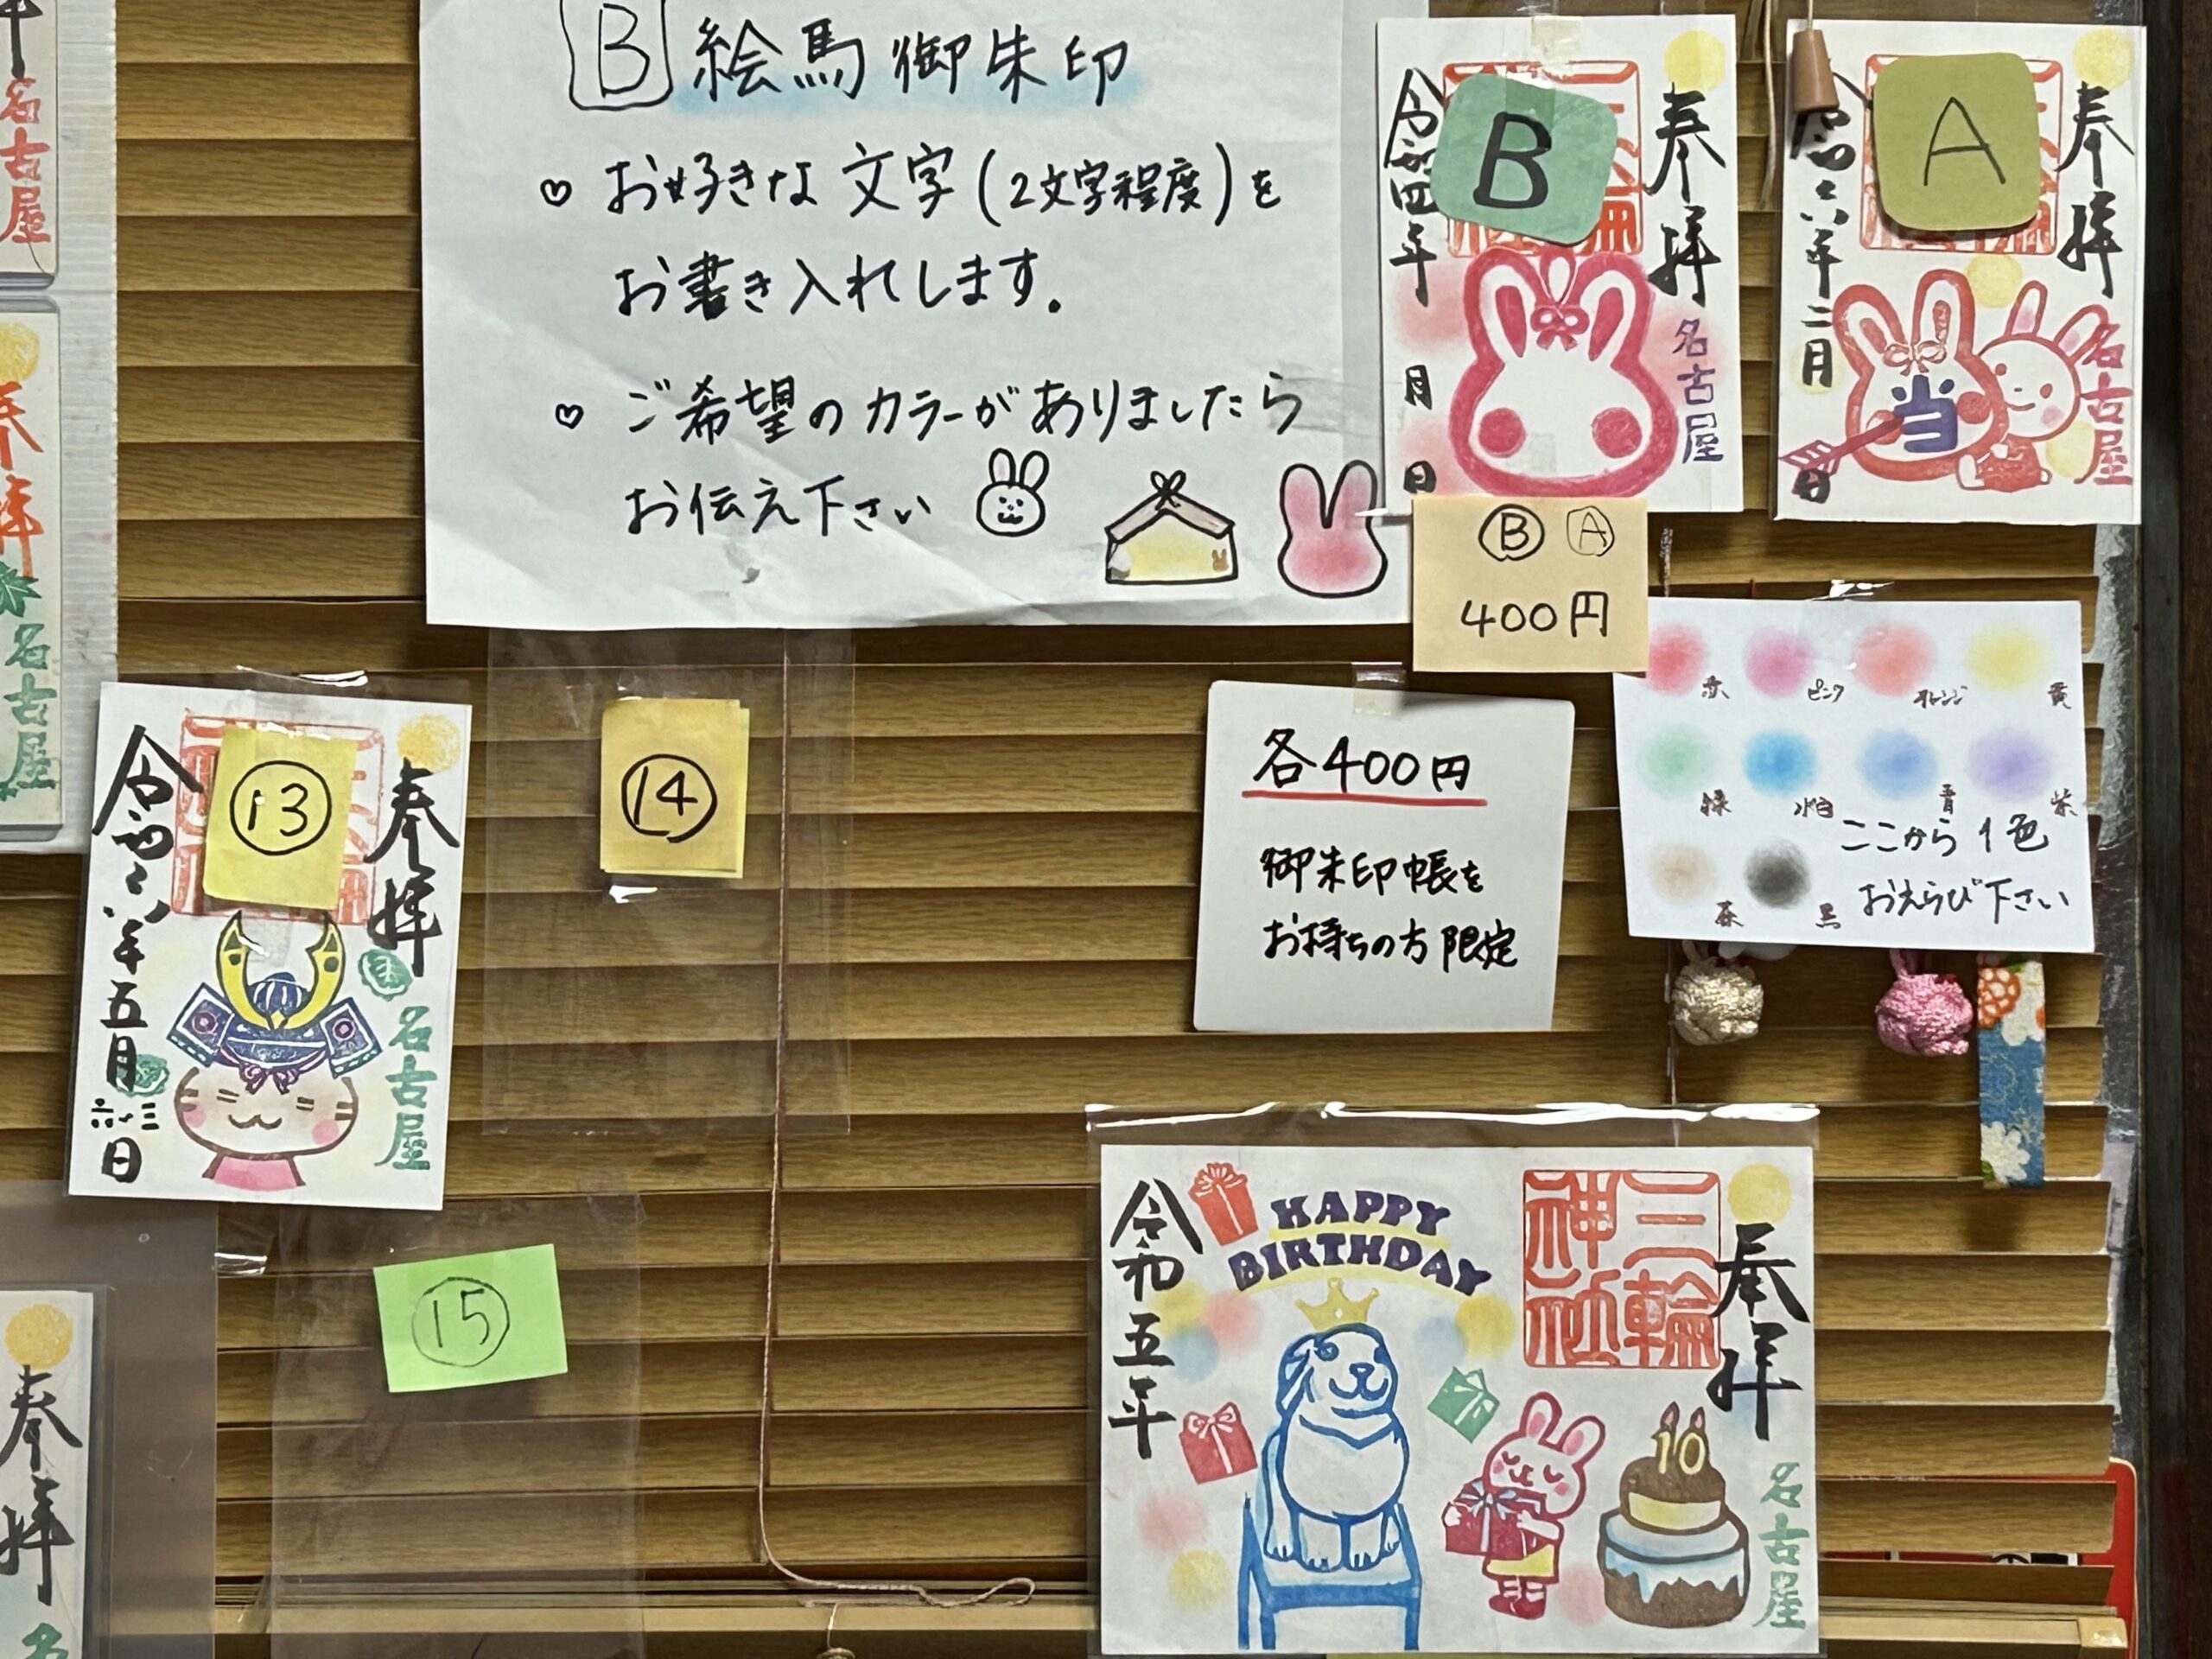 B 絵馬御朱印
♡ お好きな文字(2文字程度)を
お書き入れします。
♡ ご希望のカラーがありましたら
お伝え下さい
奉拝
名古屋
B
令和四年 月 日
奉拝
名古屋
A
当
令和六年二月 日
Ⓑ Ⓐ
400円
赤 ピンク オレンジ 黄
緑 水色 青 紫
茶 黒
ここから1色
おえらび下さい
各400円
御朱印帳を
お持ちの方限定
名古屋
奉拝
名古屋
奉拝
名古屋
⑬
令和六年五月 日
⑭
⑮
奉拝
奉拝
名古屋
三輪
神社
HAPPY
BIRTHDAY
10
令和五年